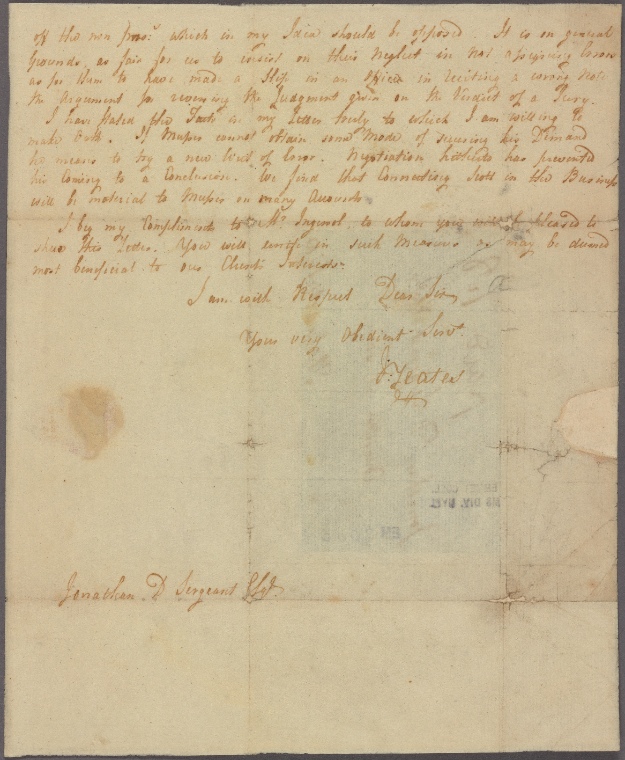 off the non pros: which in my Idea should be opposed. It is on general
Grounds, as fair for us to insist on their Neglect in not assigning Errors
as for them to have made a Slip in an in reciting a wrong
the Argument for reversing the Judgment given on the Verdict of a Jury.
I have stated the Facts in my Letter truly to which I am willing to
make Oath. If Musser cannot obtain some Mode of securing his Demand
he means to try a new Writ of Error. Negotiation hitherto has prevented
his Coming to a Conclusion. We find that Connecting in the Business
will be material to Musser on many Accounts
I beg my Compliments to Mr. Ingersol, to whom you will be pleased to
shew this Letter. You will in such Measures as may be deemed
most beneficial to our Clients Interests.
I am with Respect Dear Sir
Your very obedient Servt.
J: Yeates
Jonathan D Sergeant Esqr.